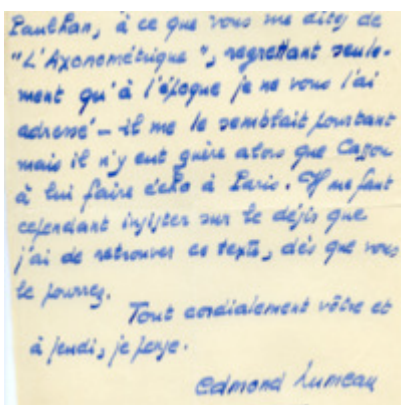 Paulhan, à ce que vous me dites de
"L'Axonométrique", regrettant seule-
ment qu'à l'époque je ne vous l'ai
adressé - il me le semblait pourtant
mais il n'y eut guère alors que Cassou
à lui faire écho à Paris. Il me faut
cependant insister sur le désir que
j'ai de retrouver ce texte, dès que vous
le pourrez.
Tout cordialement vôtre et
à jeudi, je pense.
Edmond Humeau